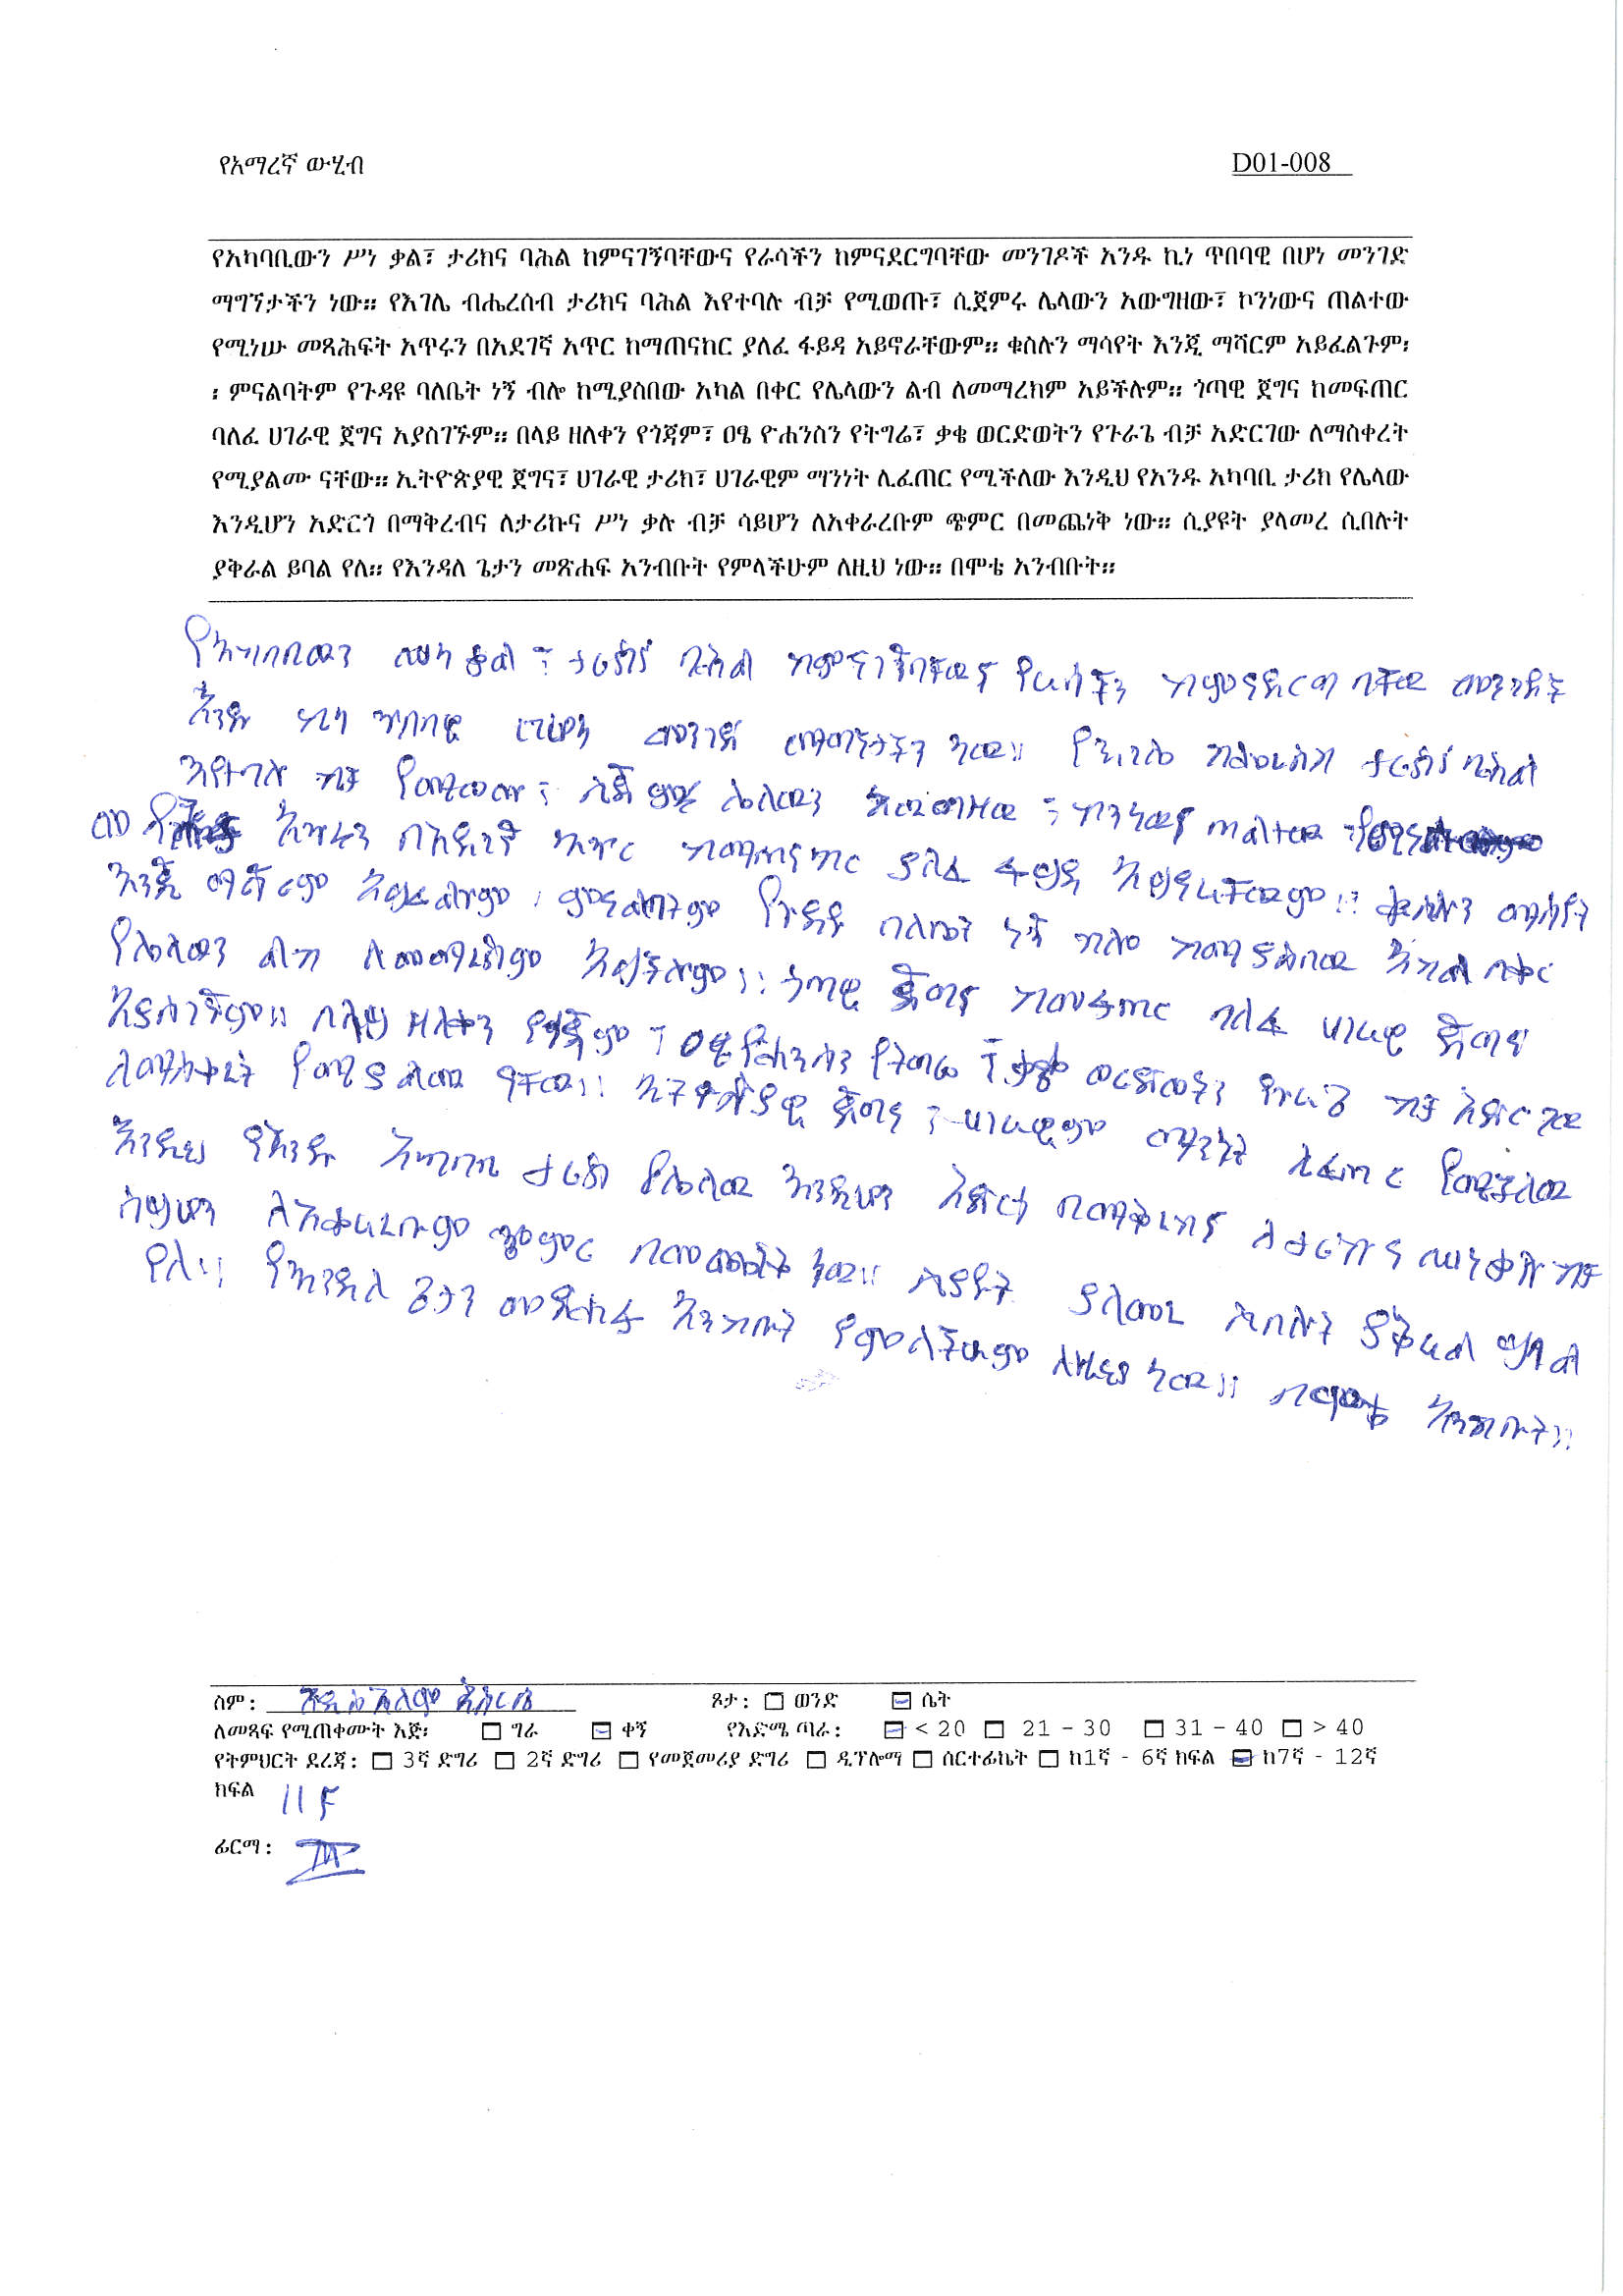 የአማረኛ ውሂብ D01-008
የአካባቢውን ሥነ ቃል፣ ታሪክና ባሕል ከምናገኝባቸውና የራሳችን ከምናደርግባቸው መንገዶች አንዱ ኪነ ጥበባዊ በሆነ መንገድ
ማግኘታችን ነው። የእገሌ ብሔረሰብ ታሪክና ባሕል እየተባሉ ብቻ የሚወጡ፣ ሲጀምሩ ሌላውን አውግዘው፣ ኮንነውና ጠልተው
የሚነሡ መጻሕፍት አጥሩን በአደገኛ አጥር ከማጠናከር ያለፈ ፋይዳ አይኖራቸውም። ቁስሉን ማሳየት እንጂ ማሻርም አይፈልጉም፡
፡ ምናልባትም የጉዳዩ ባለቤት ነኝ ብሎ ከሚያስበው አካል በቀር የሌላውን ልብ ለመማረክም አይችሉም። ጎጣዊ ጀግና ከመፍጠር
ባለፈ ሀገራዊ ጀግና አያስገኙም። በላይ ዘለቀን የጎጃም፣ ዐፄ ዮሐንስን የትግሬ፣ ቃቄ ወርድወትን የጉራጌ ብቻ አድርገው ለማስቀረት
የሚያልሙ ናቸው። ኢትዮጵያዊ ጀግና፣ ሀገራዊ ታሪክ፣ ሀገራዊም ማንነት ሊፈጠር የሚችለው እንዲህ የአንዱ አካባቢ ታሪክ የሌላው
እንዲሆን አድርጎ በማቅረብና ለታሪኩና ሥነ ቃሉ ብቻ ሳይሆን ለአቀራረቡም ጭምር በመጨነቅ ነው። ሲያዩት ያላመረ ሲበሉት
ያቅራል ይባል የለ። የእንዳለ ጌታን መጽሐፍ አንብቡት የምላችሁም ለዚህ ነው። በሞቴ አንብቡት።
የአካባቢውን ሠነ ቃል ፣ ታሪክና ባሕል ከምናገኝባቸውና የራሳችን ከምናደርግባቸው መንገዶች
አንዱ ኪነ ጥበባዊ በሆነ መንገድ በማግኘታችን ነው። የእገሌ ብሔረሰብ ታሪክና ባሕል
እየተባሉ ብቻ የሚወጡ፣ ሲጀምሩ ሌላውን አውግዘው ፣ ኮንነውና ጠልተው
አጥሩን በአደገኛ አጥር ከማጠናከር ያለፈ ፋይዳ አይኖራቸውም። ቁስሉን ማሳየት
እንጂ ማሻርም አይፈልጉም፡ ምናልባትም የጉዳዩ ባለቤት ነኝ ብሎ ከሚያስበው አካል በቀር
የሌላውን ልብ ለመማረክም አይችሉም።፡ ጎጣዊ ጀግና ከመፍጠር ባለፈ ሀገራዊ ጀግና
አያስገኙም። በላይ ዘለቀን የጎጃም ፣ ዐፄ ዮሐንስን የትግሬ ፣ ቃቄ ወርድወትን የጉራጌ ብቻ አድርገው
ለማስቀረት የሚያልሙ ናቸው። ኢትዮጵያዊ ጀግና ፣ ሀገራዊም ማንነት ሊፈጠር የሚችለው
እንዲህ የአንዱ አካባቢ ታሪክ የሌላው እንዲሆን አድርጎ በማቅረብና ለታሪኩና ሠነ ቃሉ ብቻ
ሳይሆን ለአቀራረቡም ጭምር በመጨነቅ ነው። ሲያዩት ያላመረ ሲበሉት ያቅራል ይባል
የለ።፡ የእንዳለ ጌታን መጽሐፍ አንብቡት የምላችሁም ለዚህ ነው። በሞቴ አንብቡት።
ስም: ጾታ: ወንድ ሴት
ለመጻፍ የሚጠቀሙት እጅ፡ ግራ ቀኝ የእድሜ ጣራ: < 20 21 - 30 31 - 40 > 40
የትምህርት ደረጃ: 3ኛ ድግሪ 2ኛ ድግሪ የመጀመሪያ ድግሪ ዲፕሎማ ሰርተፊኬት ከ1ኛ - 6ኛ ክፍል ከ7ኛ - 12ኛ
ክፍል 11ኛ
ፊርማ: